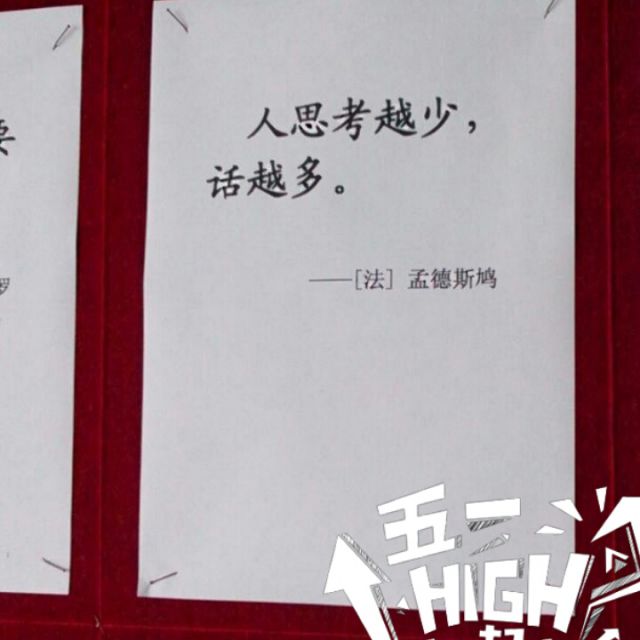 要
罗
人思考越少，
话越多。
——[法] 孟德斯鸠
五
HIGH